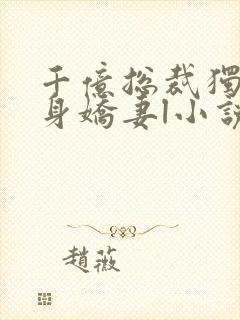 千億総裁獨
身嬌妻|小説
趙薇